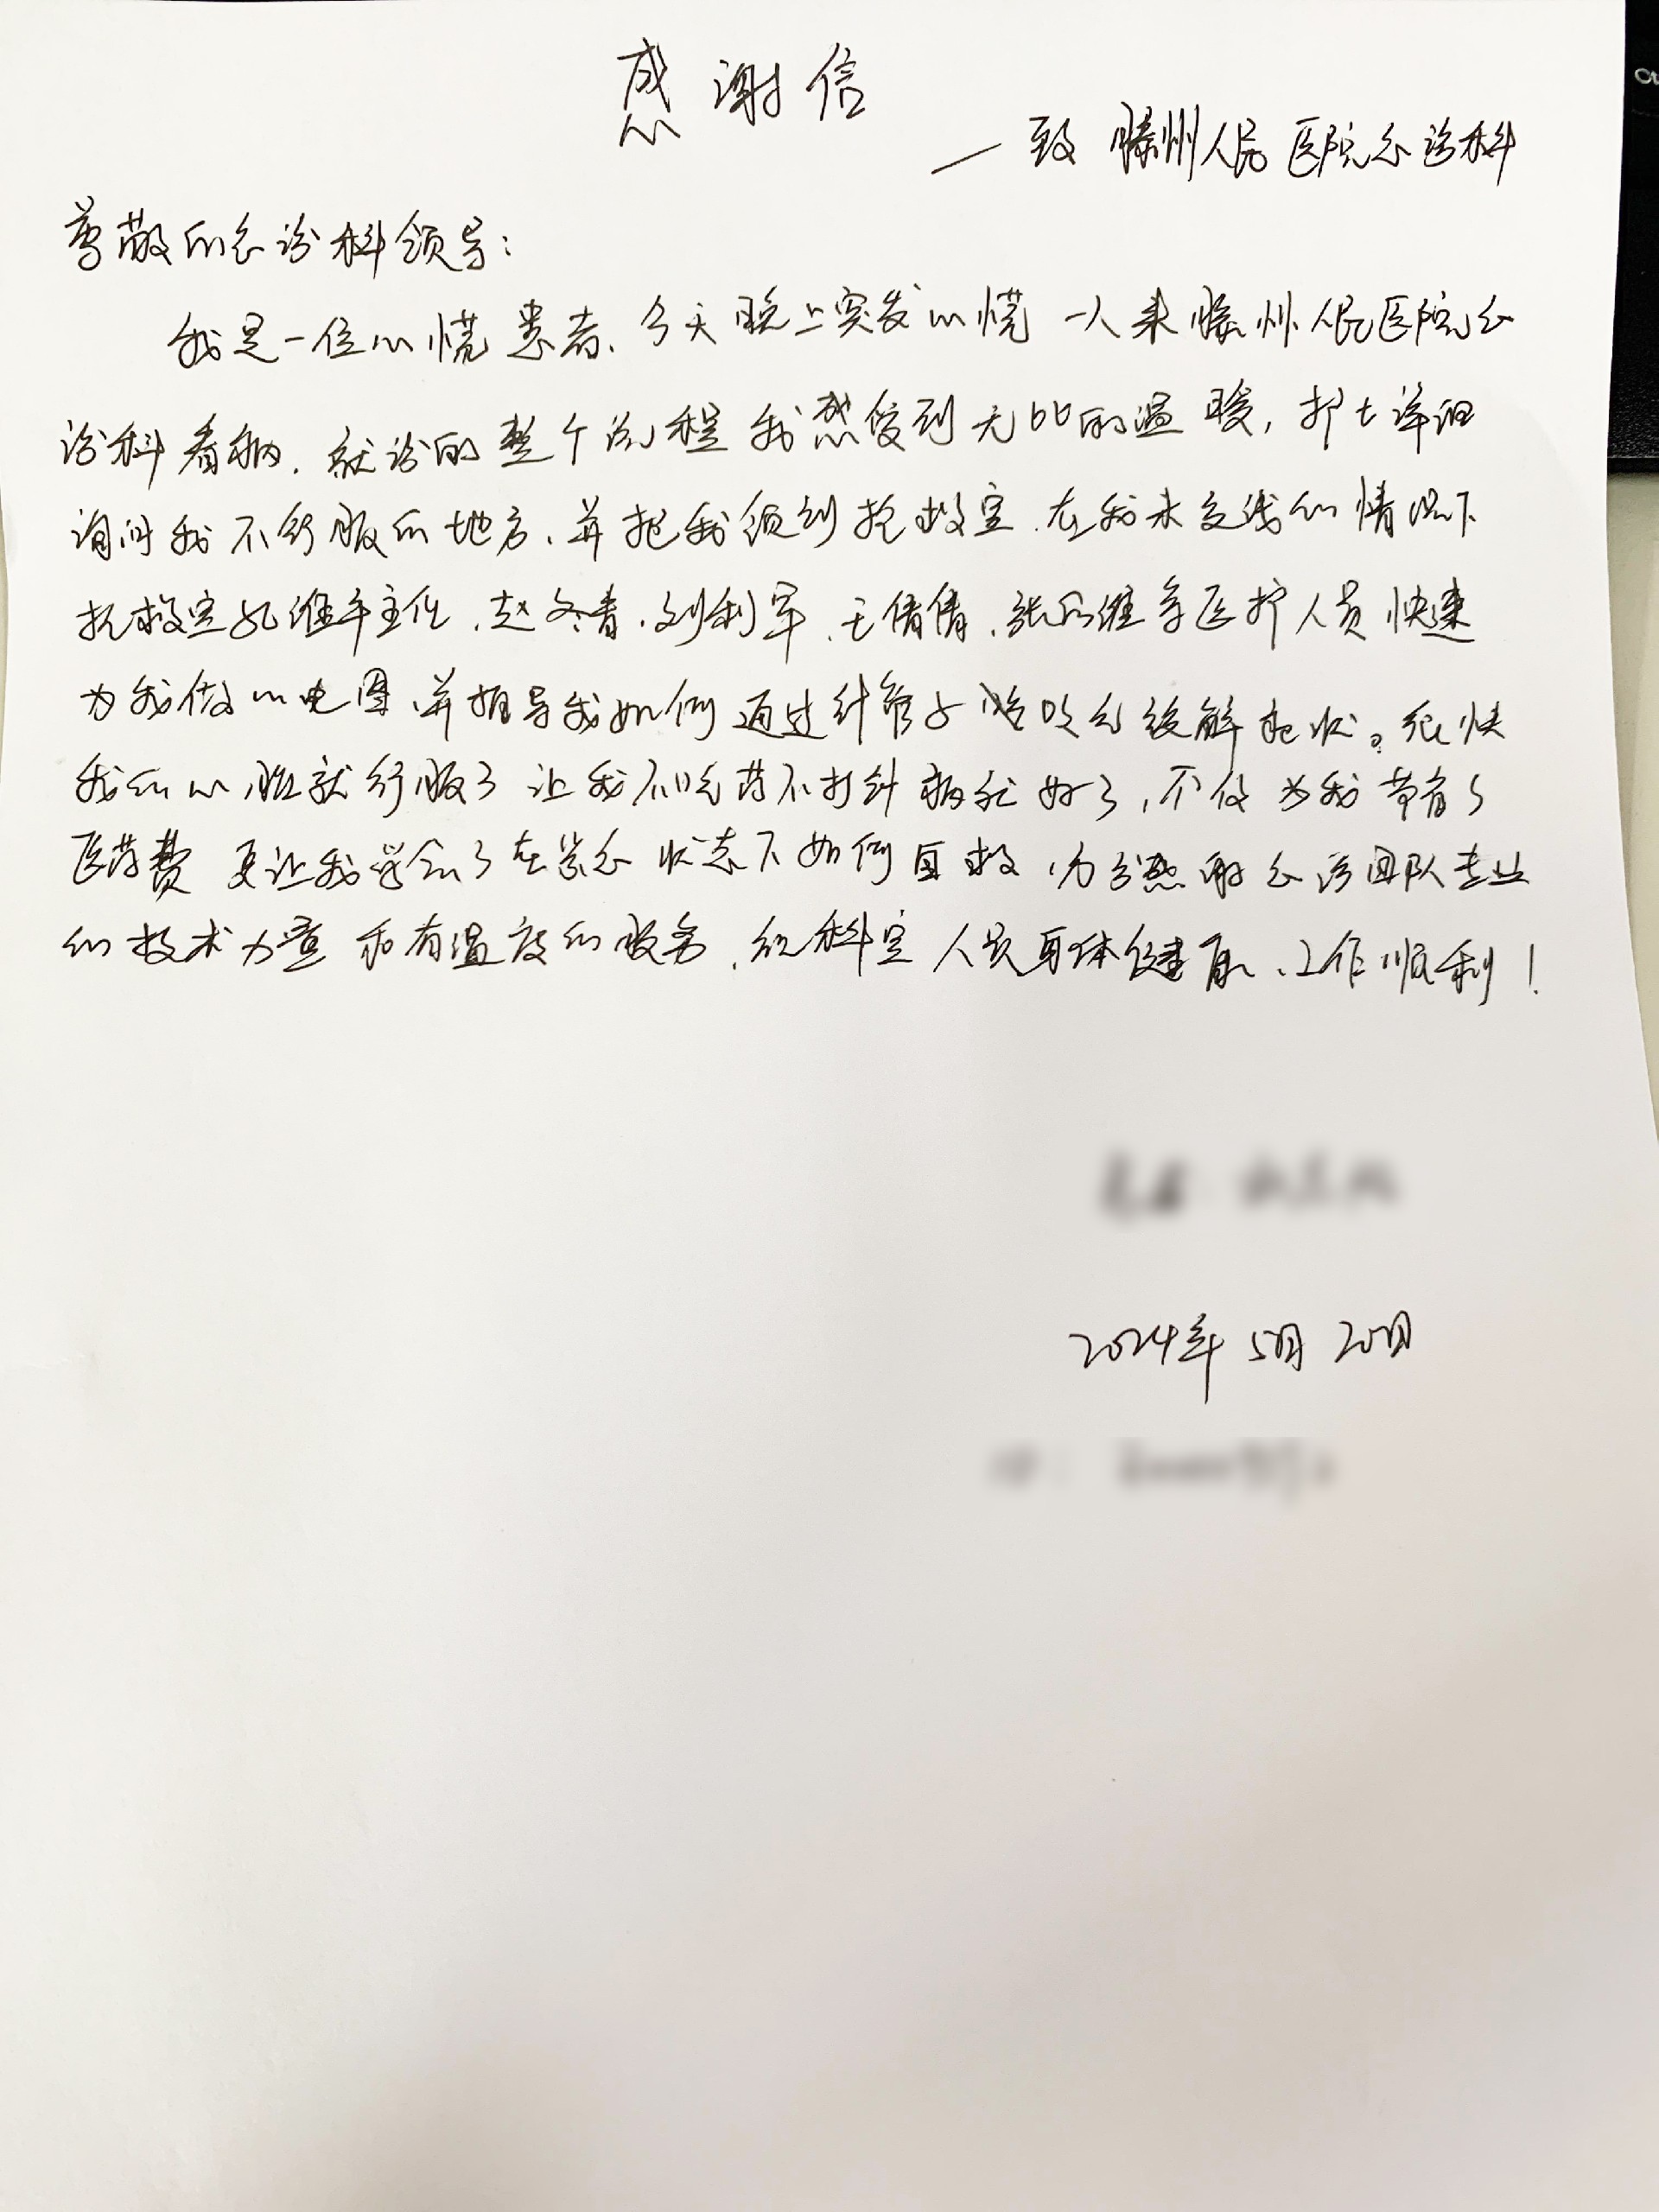 感谢信
— 致 滕州人民医院急诊科
尊敬的急诊科领导：
我是一位心慌患者、今天晚上突发心慌 一人来滕州人民医院急
诊科看病. 就诊的整个流程我感受到无比的温暖, 护士详细
询问我不舒服的地方、并把我领到抢救室. 在我未交钱的情况下
抢救室 主任、赵冬青、刘利军、王倩倩、 等医护人员快速
为我做心电图、并指导我如何通过针管子 吹气缓解症状。很快
我的心脏就舒服了 让我不吃药不打针病就好了, 不仅为我节省了
医药费 更让我学会了在紧急状态下如何自救、为了感谢急诊团队专业
的技术力量和有温度的服务、祝科室人员身体健康、工作顺利！
2024年5月20日